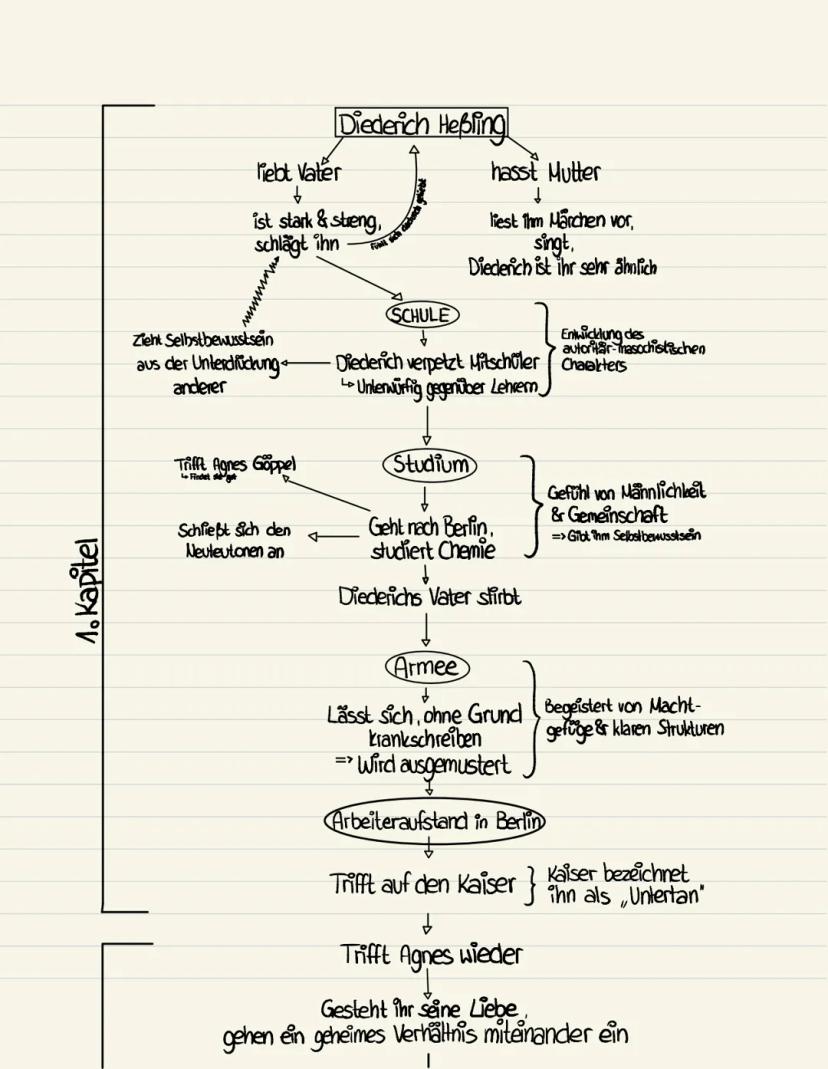 Diederich Heßling
liebt Vater
hasst Mutter
ist stark & streng,
schlägt ihn
Fühlt sich dadurch geliebt
liest ihm Märchen vor,
singt,
Diederich ist ihr sehr ähnlich
SCHULE
Zieht Selbstbewusstsein
aus der Unterdrückung
anderer
Diederich verpetzt Mitschüler
↳ Unterwürfig gegenüber Lehrern
Entwicklung des
autoritär-masochistischen
Charakters
Studium
Trifft Agnes Göppel
↳ Findet sie gut
Schließt sich den
Neuteutonen an
Geht nach Berlin,
studiert Chemie
Gefühl von Männlichkeit
& Gemeinschaft
=> Gibt ihm Selbstbewusstsein
Diederichs Vater stirbt
1. Kapitel
Armee
Lässt sich, ohne Grund
krankschreiben
=> Wird ausgemustert
Begeistert von Macht-
gefüge & klaren Strukturen
Arbeiteraufstand in Berlin
Trifft auf den Kaiser
Kaiser bezeichnet
ihn als „Untertan"
Trifft Agnes wieder
Gesteht ihr seine Liebe,
gehen ein geheimes Verhältnis miteinander ein